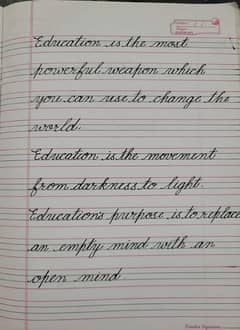 Education is the most
powerful weapon which
you can use to change the
world.
Education is the movement
from darkness to light.
Education's purpose is to replace
an empty mind with an
open mind